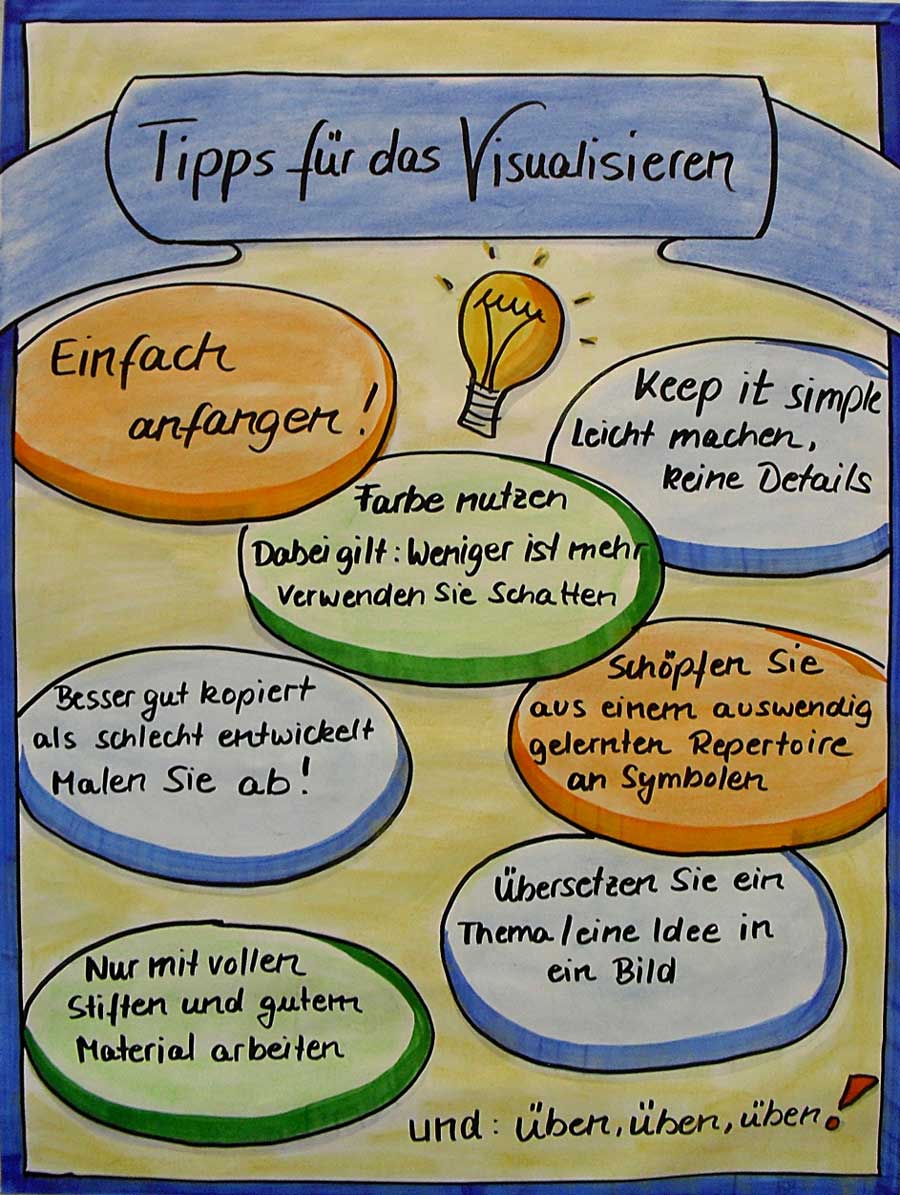 Tipps für das Visualisieren
Einfach
anfangen!
Keep it simple
Leicht machen,
keine Details
Farbe nutzen
Dabei gilt: Weniger ist mehr
Verwenden Sie Schatten
Schöpfen Sie
aus einem auswendig
gelernten Repertoire
an Symbolen
Besser gut kopiert
als schlecht entwickelt
Malen Sie ab!
Übersetzen Sie ein
Thema/eine Idee in
ein Bild
Nur mit vollen
Stiften und gutem
Material arbeiten
und: üben, üben, üben!